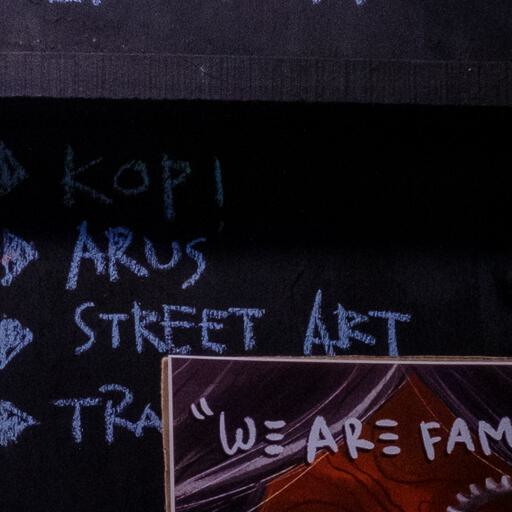 KOPI
ARUS
STREET ART
TRA
"WE ARE FAM